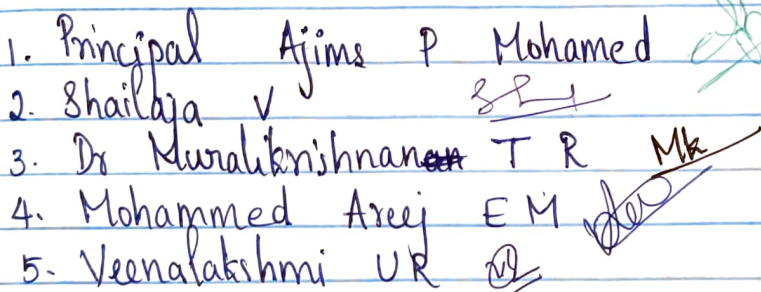 1. Principal Ajims P Mohamed
2. Shailaja V
3. Dr Muralikrishnan T R Mk
4. Mohammed Areej E M
5. Veenalakshmi U R